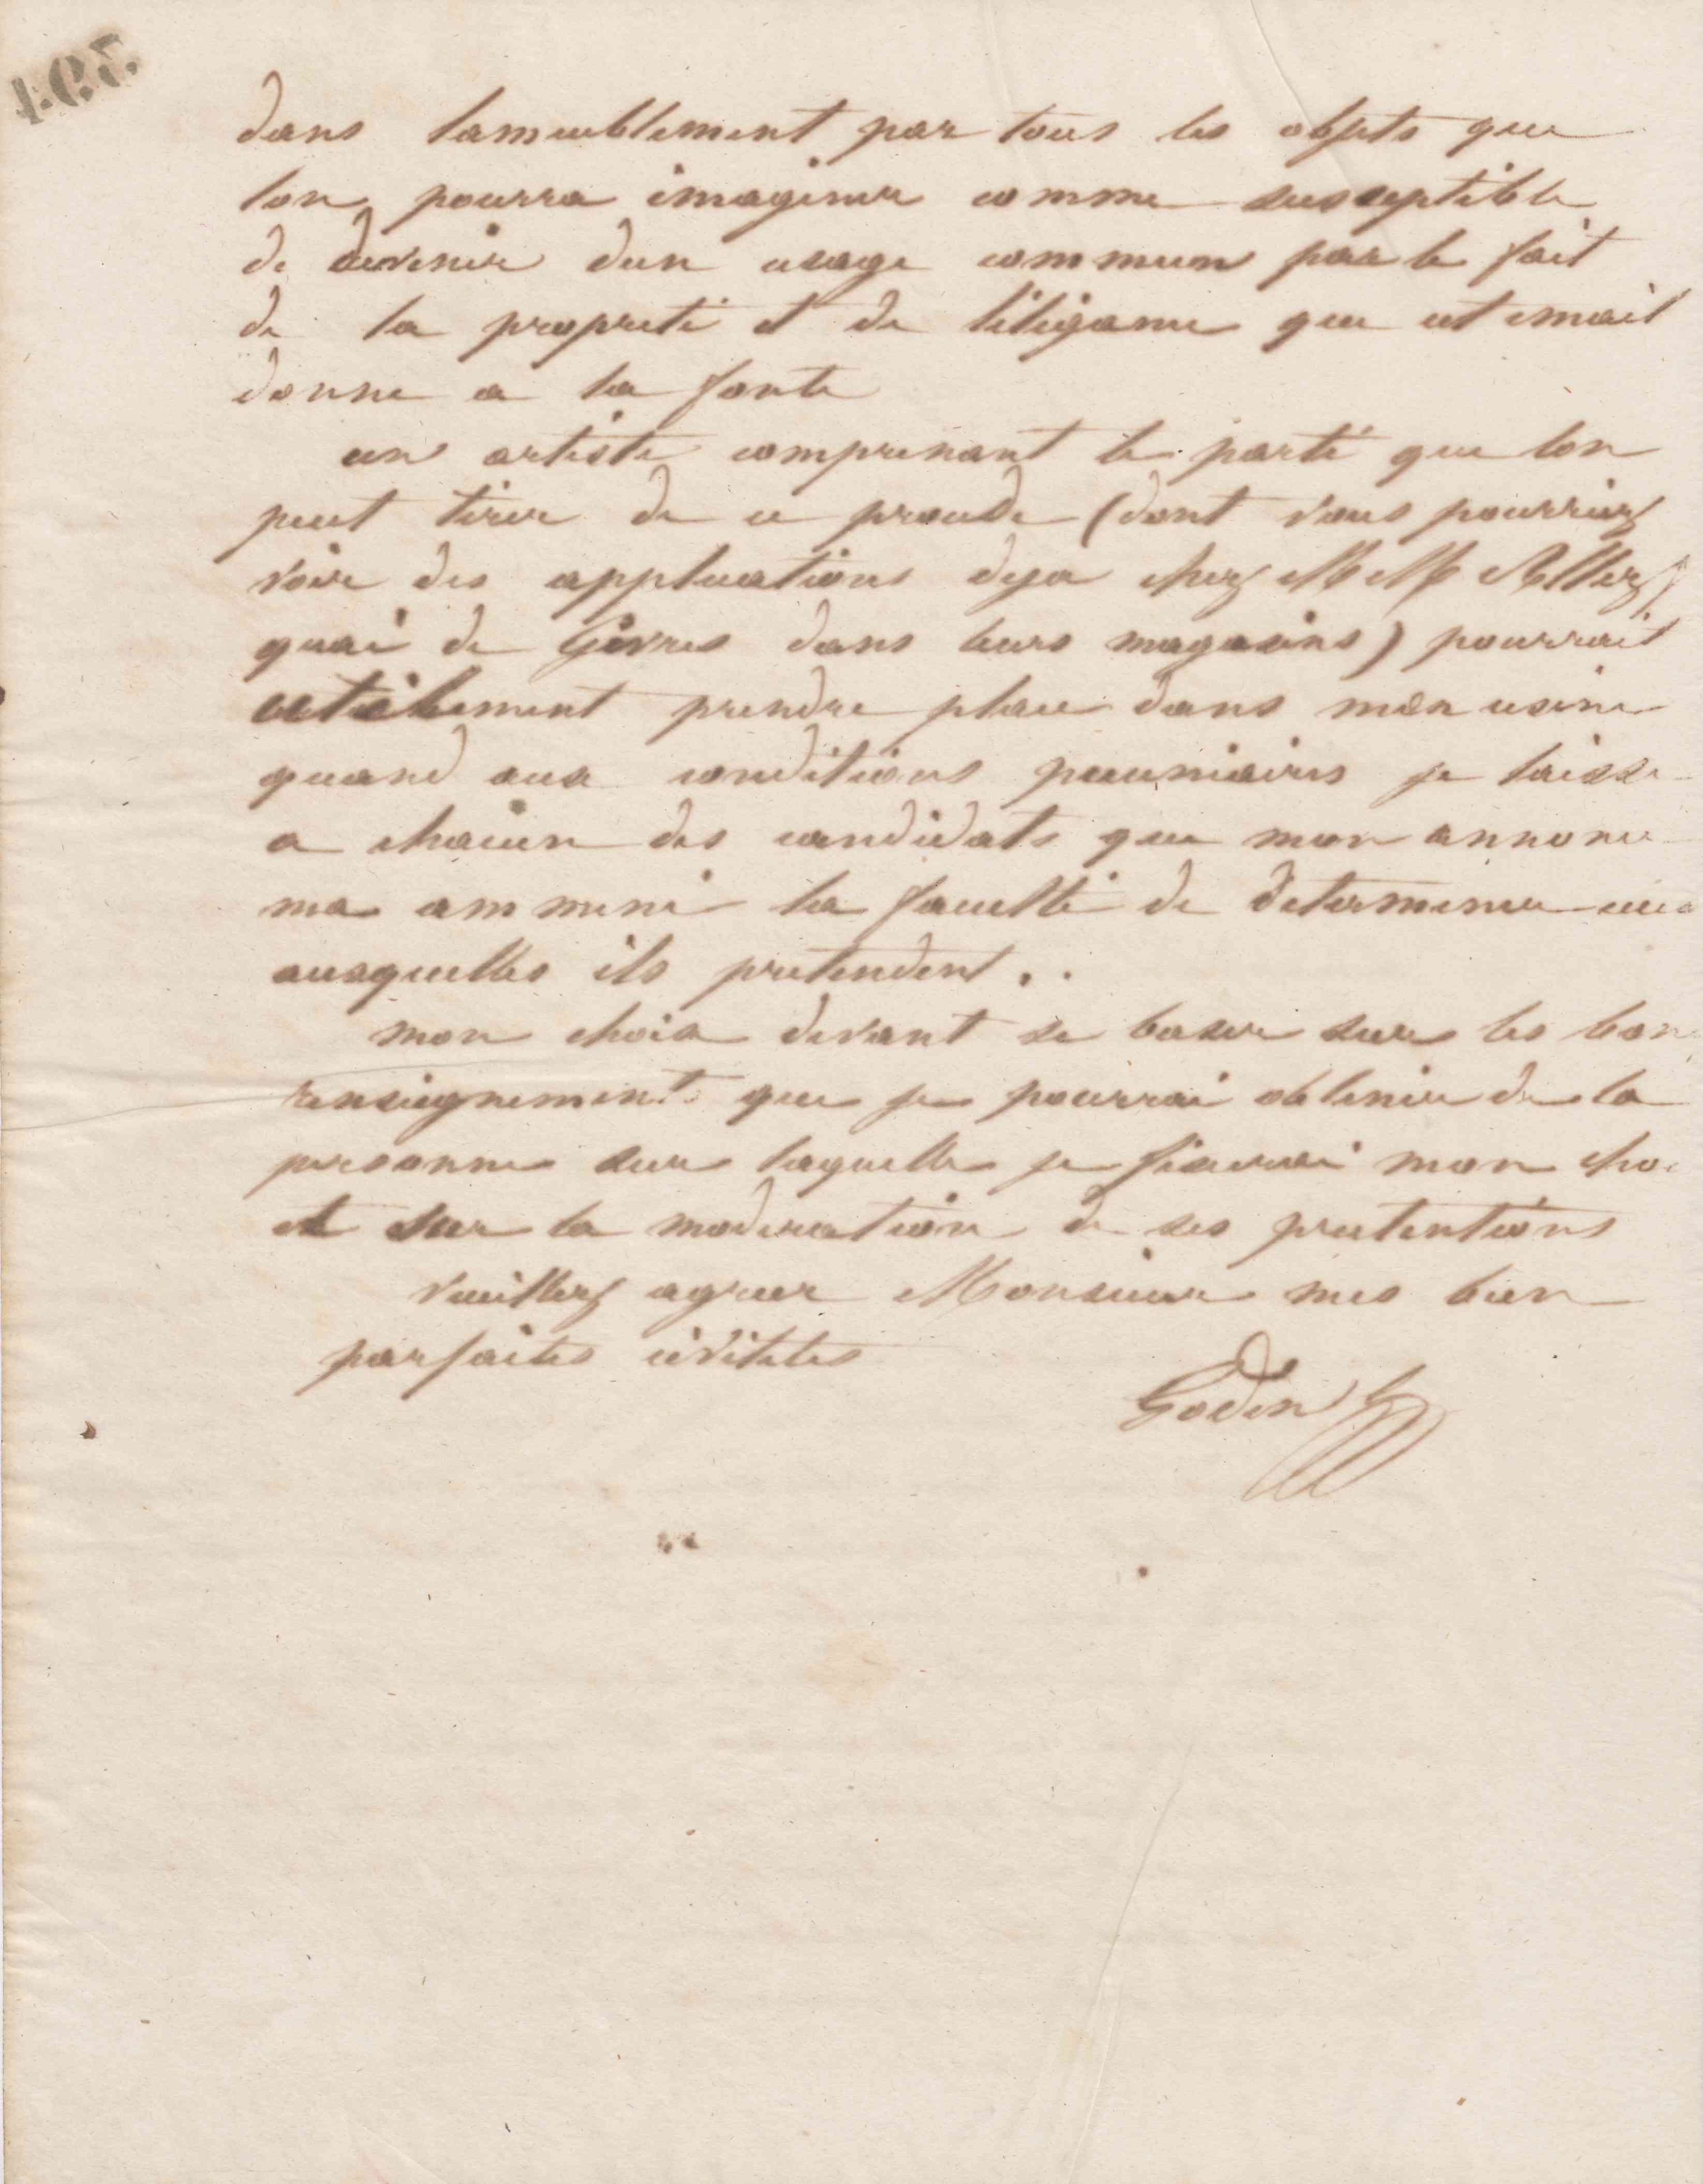 dans lameublement par tous les objets que
lon pourra imaginer comme susceptible
de devenir dun usage commun par le fait
de la propreté et de lélégance que cet email
donne a la fonte
un artiste comprenant le parti que lon
peut tirer de ce procede (dont vous pourriez
voir des applications deja chez MM Allez
quai de Gèvres dans leurs magasins) pourrait
utilement prendre place dans mon usine
quand aux conditions pecuniaires je laisse
a chacun des candidats que mon annonce
ma ammené la faculté de determiner
ausquelles ils pretendent..
mon choix devant se baser sur les bon
renseignement que je pourrai obtenir de la
personne sur laquelle je fixerai mon
et sur la moderation de ses pretentions
veuillez agreer Monsieur mes bien
parfaites civilites
Godin